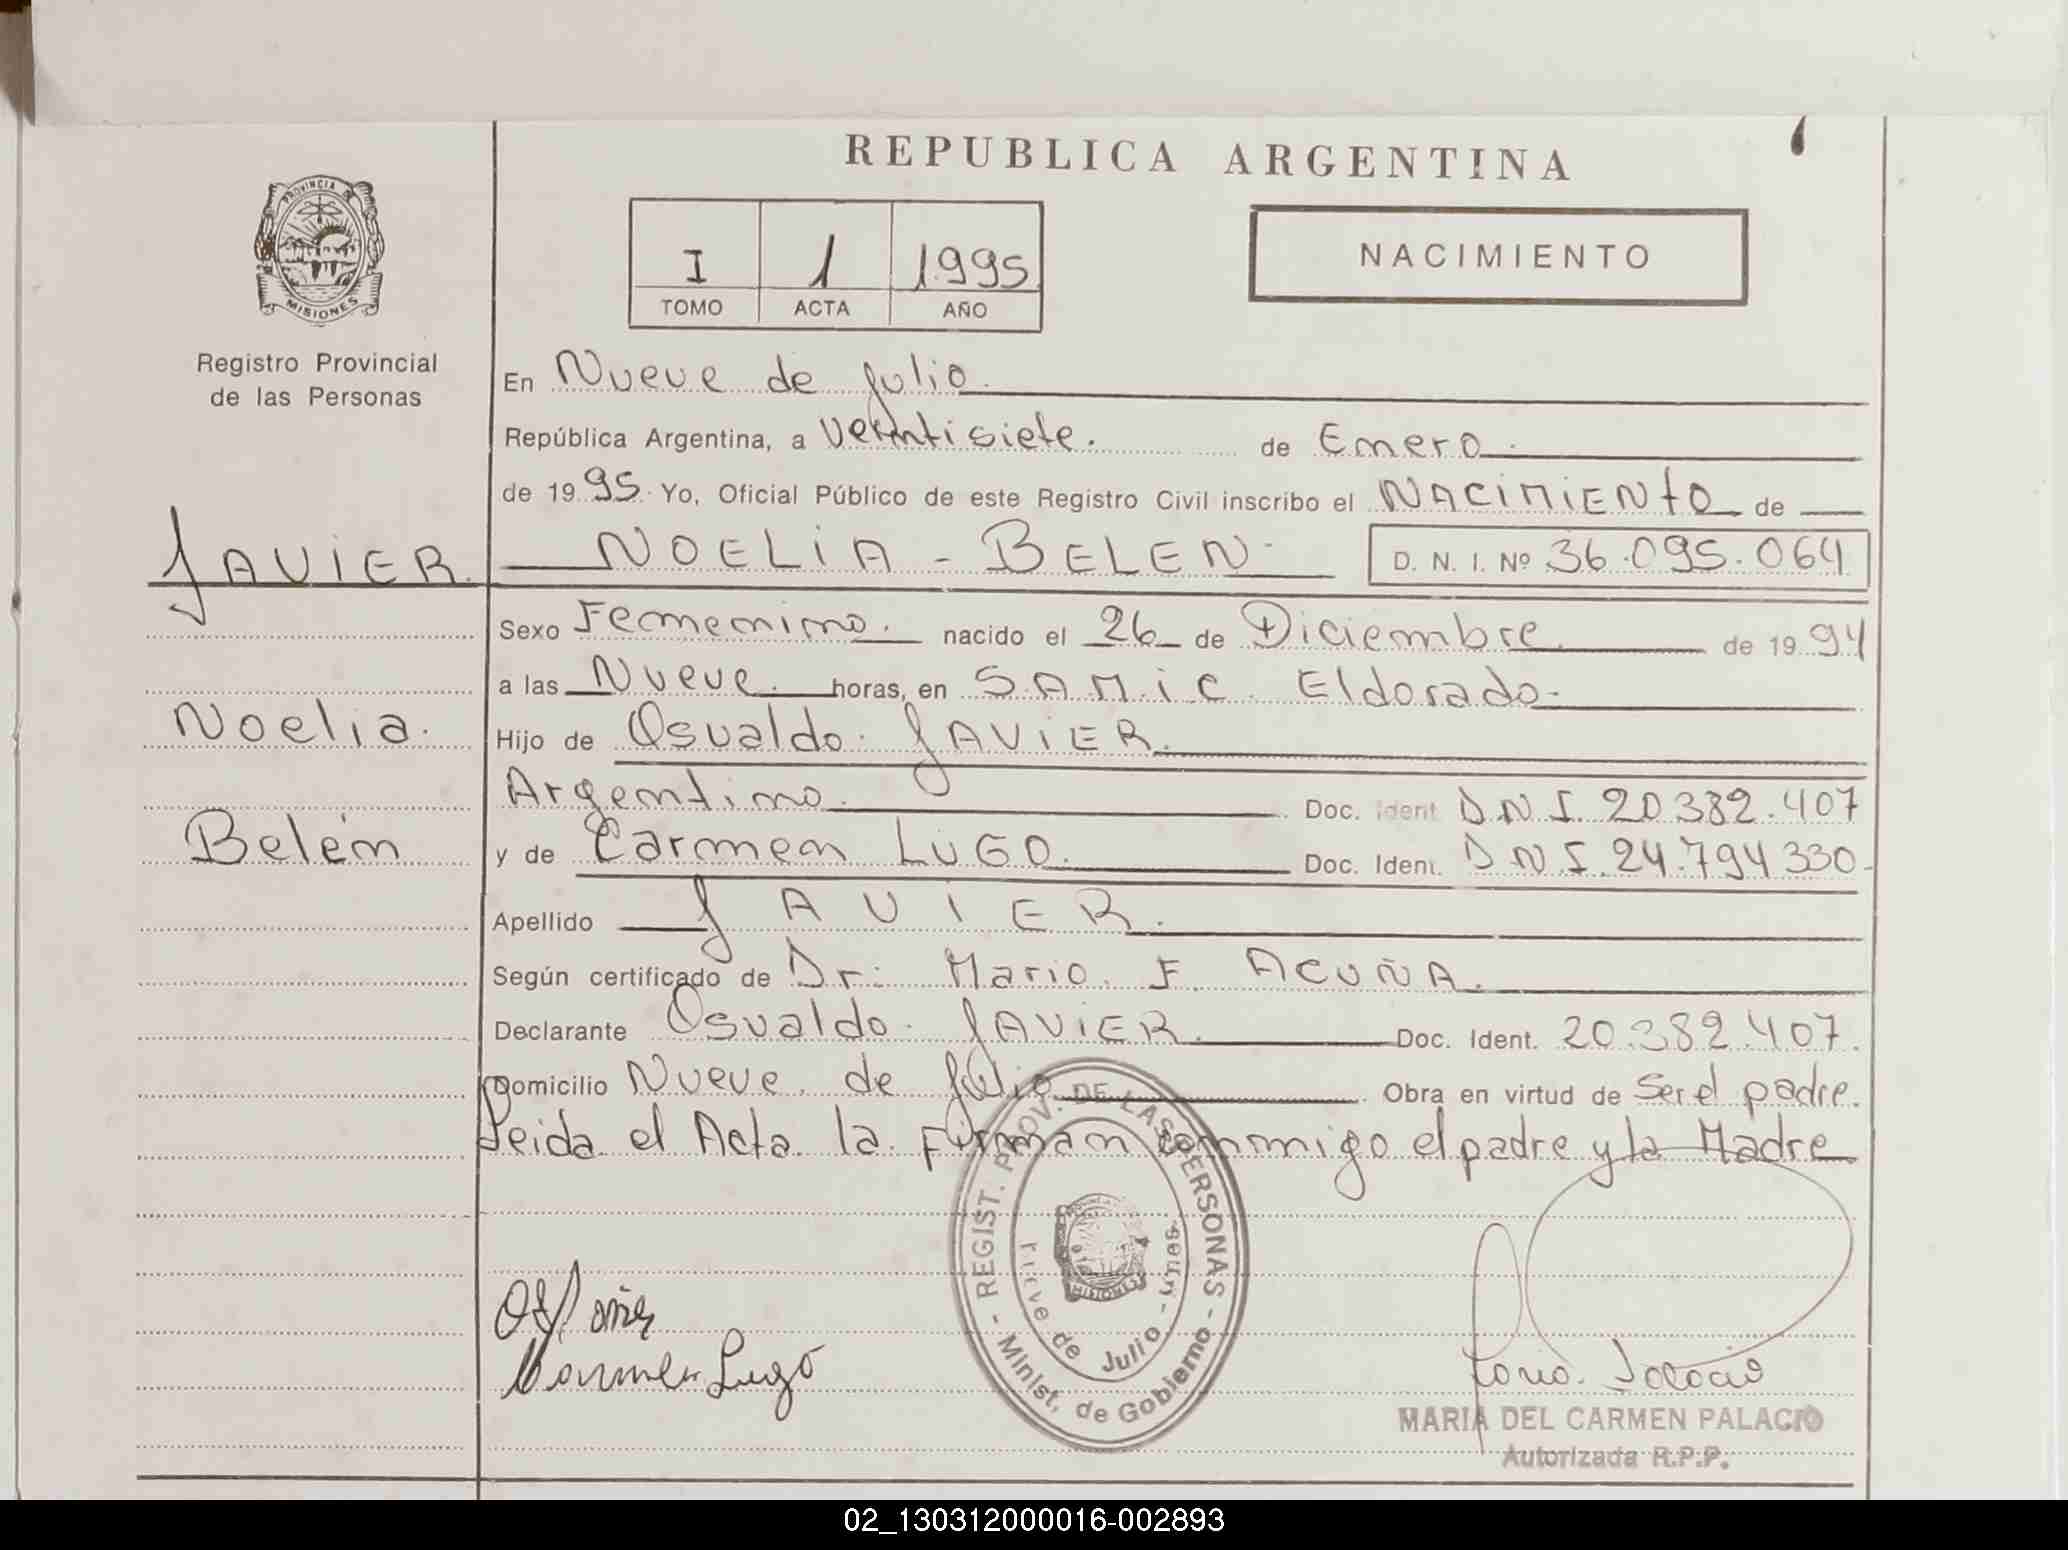 REPUBLICA ARGENTINA
PROVINCIA DE
MISIONES
I 1 1995
TOMO ACTA AÑO
NACIMIENTO
Registro Provincial
de las Personas
JAVIER.
Noelia.
Belén
En Nueve de Julio.
República Argentina, a Veintisiete. de Enero.
de 1995. Yo, Oficial Público de este Registro Civil inscribo el NACIMIENTO de
NOELIA - BELEN- D. N. I. Nº 36.095.064
Sexo Femenino. nacido el 26 de Diciembre de 1994
a las Nueve. horas, en S.A.M.i.C. Eldorado.
Hijo de Osvaldo JAVIER.
Argentino. Doc. Ident. D.N.I. 20.382.407
y de Carmen LUGO. Doc. Ident. D.N.I. 24.794.330-
Apellido JAVIER.
Según certificado de Dr: Mario. F. ACUÑA.
Declarante Osvaldo JAVIER. Doc. Ident. 20.382.407.
Domicilio Nueve de Julio Obra en virtud de Ser el padre.
Leida el Acta la Firman conmigo el padre y la Madre
- REGIST. PROV. DE LAS PERSONAS -
Minist. de Gobierno
Nueve de Julio
MISIONES
Carmen Lugo
MARIA DEL CARMEN PALACIO
Autorizada R.P.P.
02_130312000016-002893